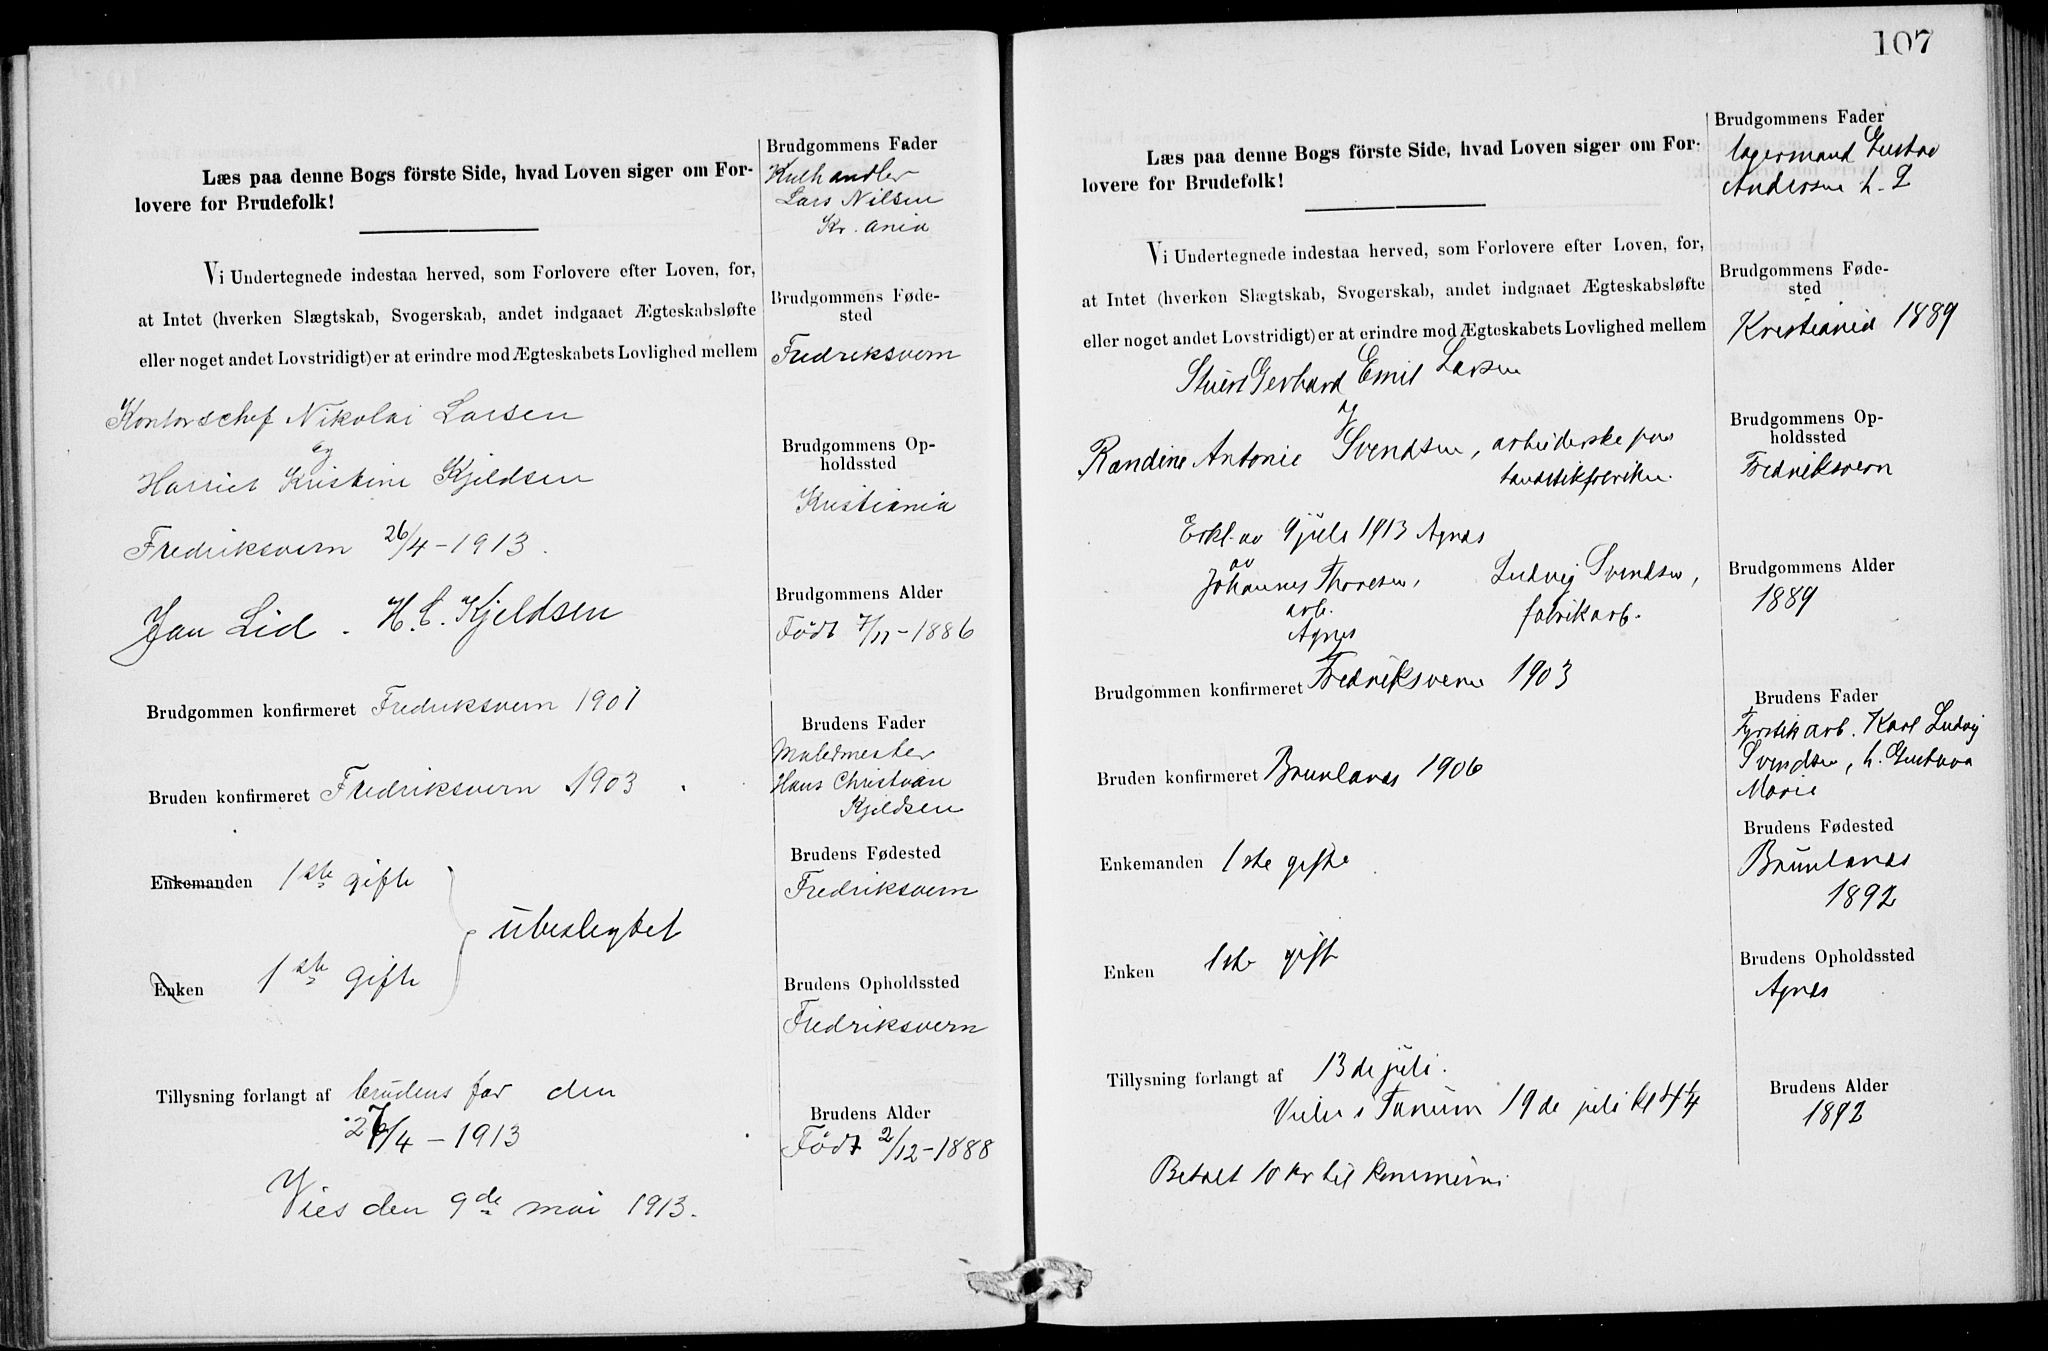 Læs paa denne Bogs förste Side, hvad Loven siger om For-
lovere for Brudefolk!
Vi Undertegnede indestaa herved, som Forlovere efter Loven, for,
at Intet (hverken Slægtskab, Svogerskab, andet indgaaet Ægteskabsløfte
eller noget andet Lovstridigt) er at erindre mod Ægteskabets Lovlighed mellem
Kontorschef Nikolai Larsen
og
Harriet Kristine Kjeldsen
Fredriksvern 26/4 - 1913.
Jan Lid. H. C. Kjeldsen
Brudgommen konfirmeret Fredriksvern 1901
Bruden konfirmeret Fredriksvern 1903
Enkemanden 1ste gifte
ubeslegtet
Enken 1ste gifte
Tillysning forlangt af brudens far den
/4 - 1913
Vies den 9de mai 1913.
Brudgommens Fader
Kulhandler
Lars Nilsen
Kr.ania
Brudgommens Føde-
sted
Fredriksvern
Brudgommens Op-
holdssted
Kristiania
Brudgommens Alder
Født 7/11 - 1886
Brudens Fader
Malermester
Hans Christian
Kjeldsen
Brudens Fødested
Fredriksvern
Brudens Opholdssted
Fredriksvern
Brudens Alder
Født 2/12 - 1888
107
Læs paa denne Bogs förste Side, hvad Loven siger om For-
lovere for Brudefolk!
Vi Undertegnede indestaa herved, som Forlovere efter Loven, for,
at Intet (hverken Slægtskab, Svogerskab, andet indgaaet Ægteskabsløfte
eller noget andet Lovstridigt) er at erindre mod Ægteskabets Lovlighed mellem
Gerhard Emil Larsen
og
Randine Antonie Svendsen, arbeiderske paa
Erkl. av 9 juli 1913 Agnes
av
Johannes Thoresen, Ludvig Svendsen,
arb. fabrikarb.
Agnes
Brudgommen konfirmeret Fredriksvern 1903
Bruden konfirmeret Brunlanes 1906
Enkemanden 1ste gifte
Enken 1ste gift
Tillysning forlangt af 13de juli.
Vies i Tanum 19de juli kl 4 1/4
Betalt 10 kr til
Brudgommens Fader
lagermand Gustav
Andersen
Brudgommens Føde-
sted
Kristiania 1889
Brudgommens Op-
holdssted
Fredriksvern
Brudgommens Alder
1889
Brudens Fader
Fyrstikarb. Karl Ludvig
Svendsen, h. Gustava
Marie
Brudens Fødested
Brunlanes
1892
Brudens Opholdssted
Agnes
Brudens Alder
1892